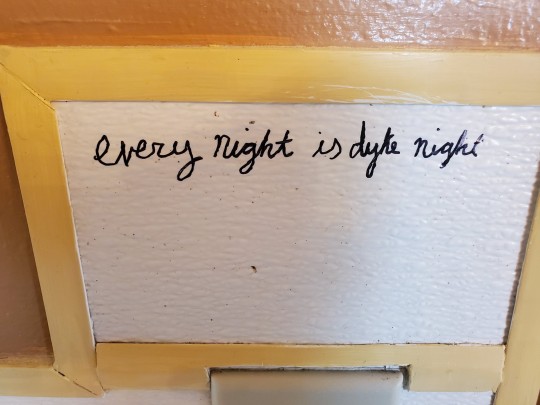 every night is dyke night